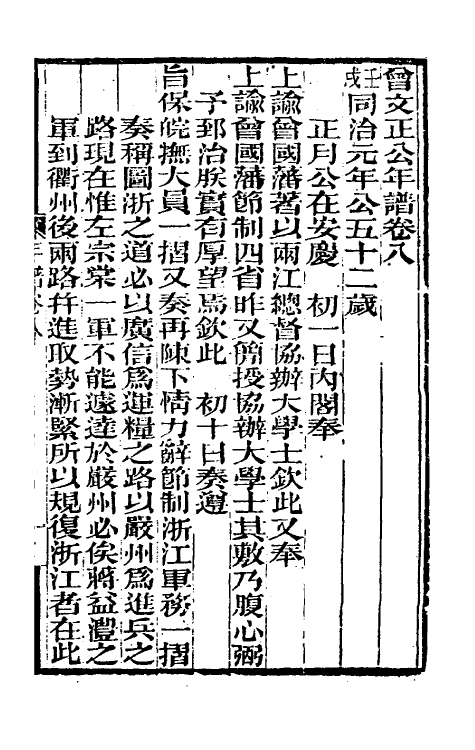 曾文正公年譜卷八
壬戌同治元年公五十二歲
正月公在安慶　初一日內閣奉
上諭曾國藩著以兩江總督協辦大學士欽此又奉
上諭曾國藩節制四省昨又簡授協辦大學士其敷乃腹心弼
予郅治朕實有厚望焉欽此　初十日奏遵
旨保皖撫大員一摺又奏再陳下情力辭節制浙江軍務一摺
奏稱圖浙之道必以廣信爲運糧之路以嚴州爲進兵之
路現在惟左宗棠一軍不能遽達於嚴州必俟蔣益澧之
軍到衢州後兩路幷進取勢漸緊所以規復浙江者在此
年譜卷八　一